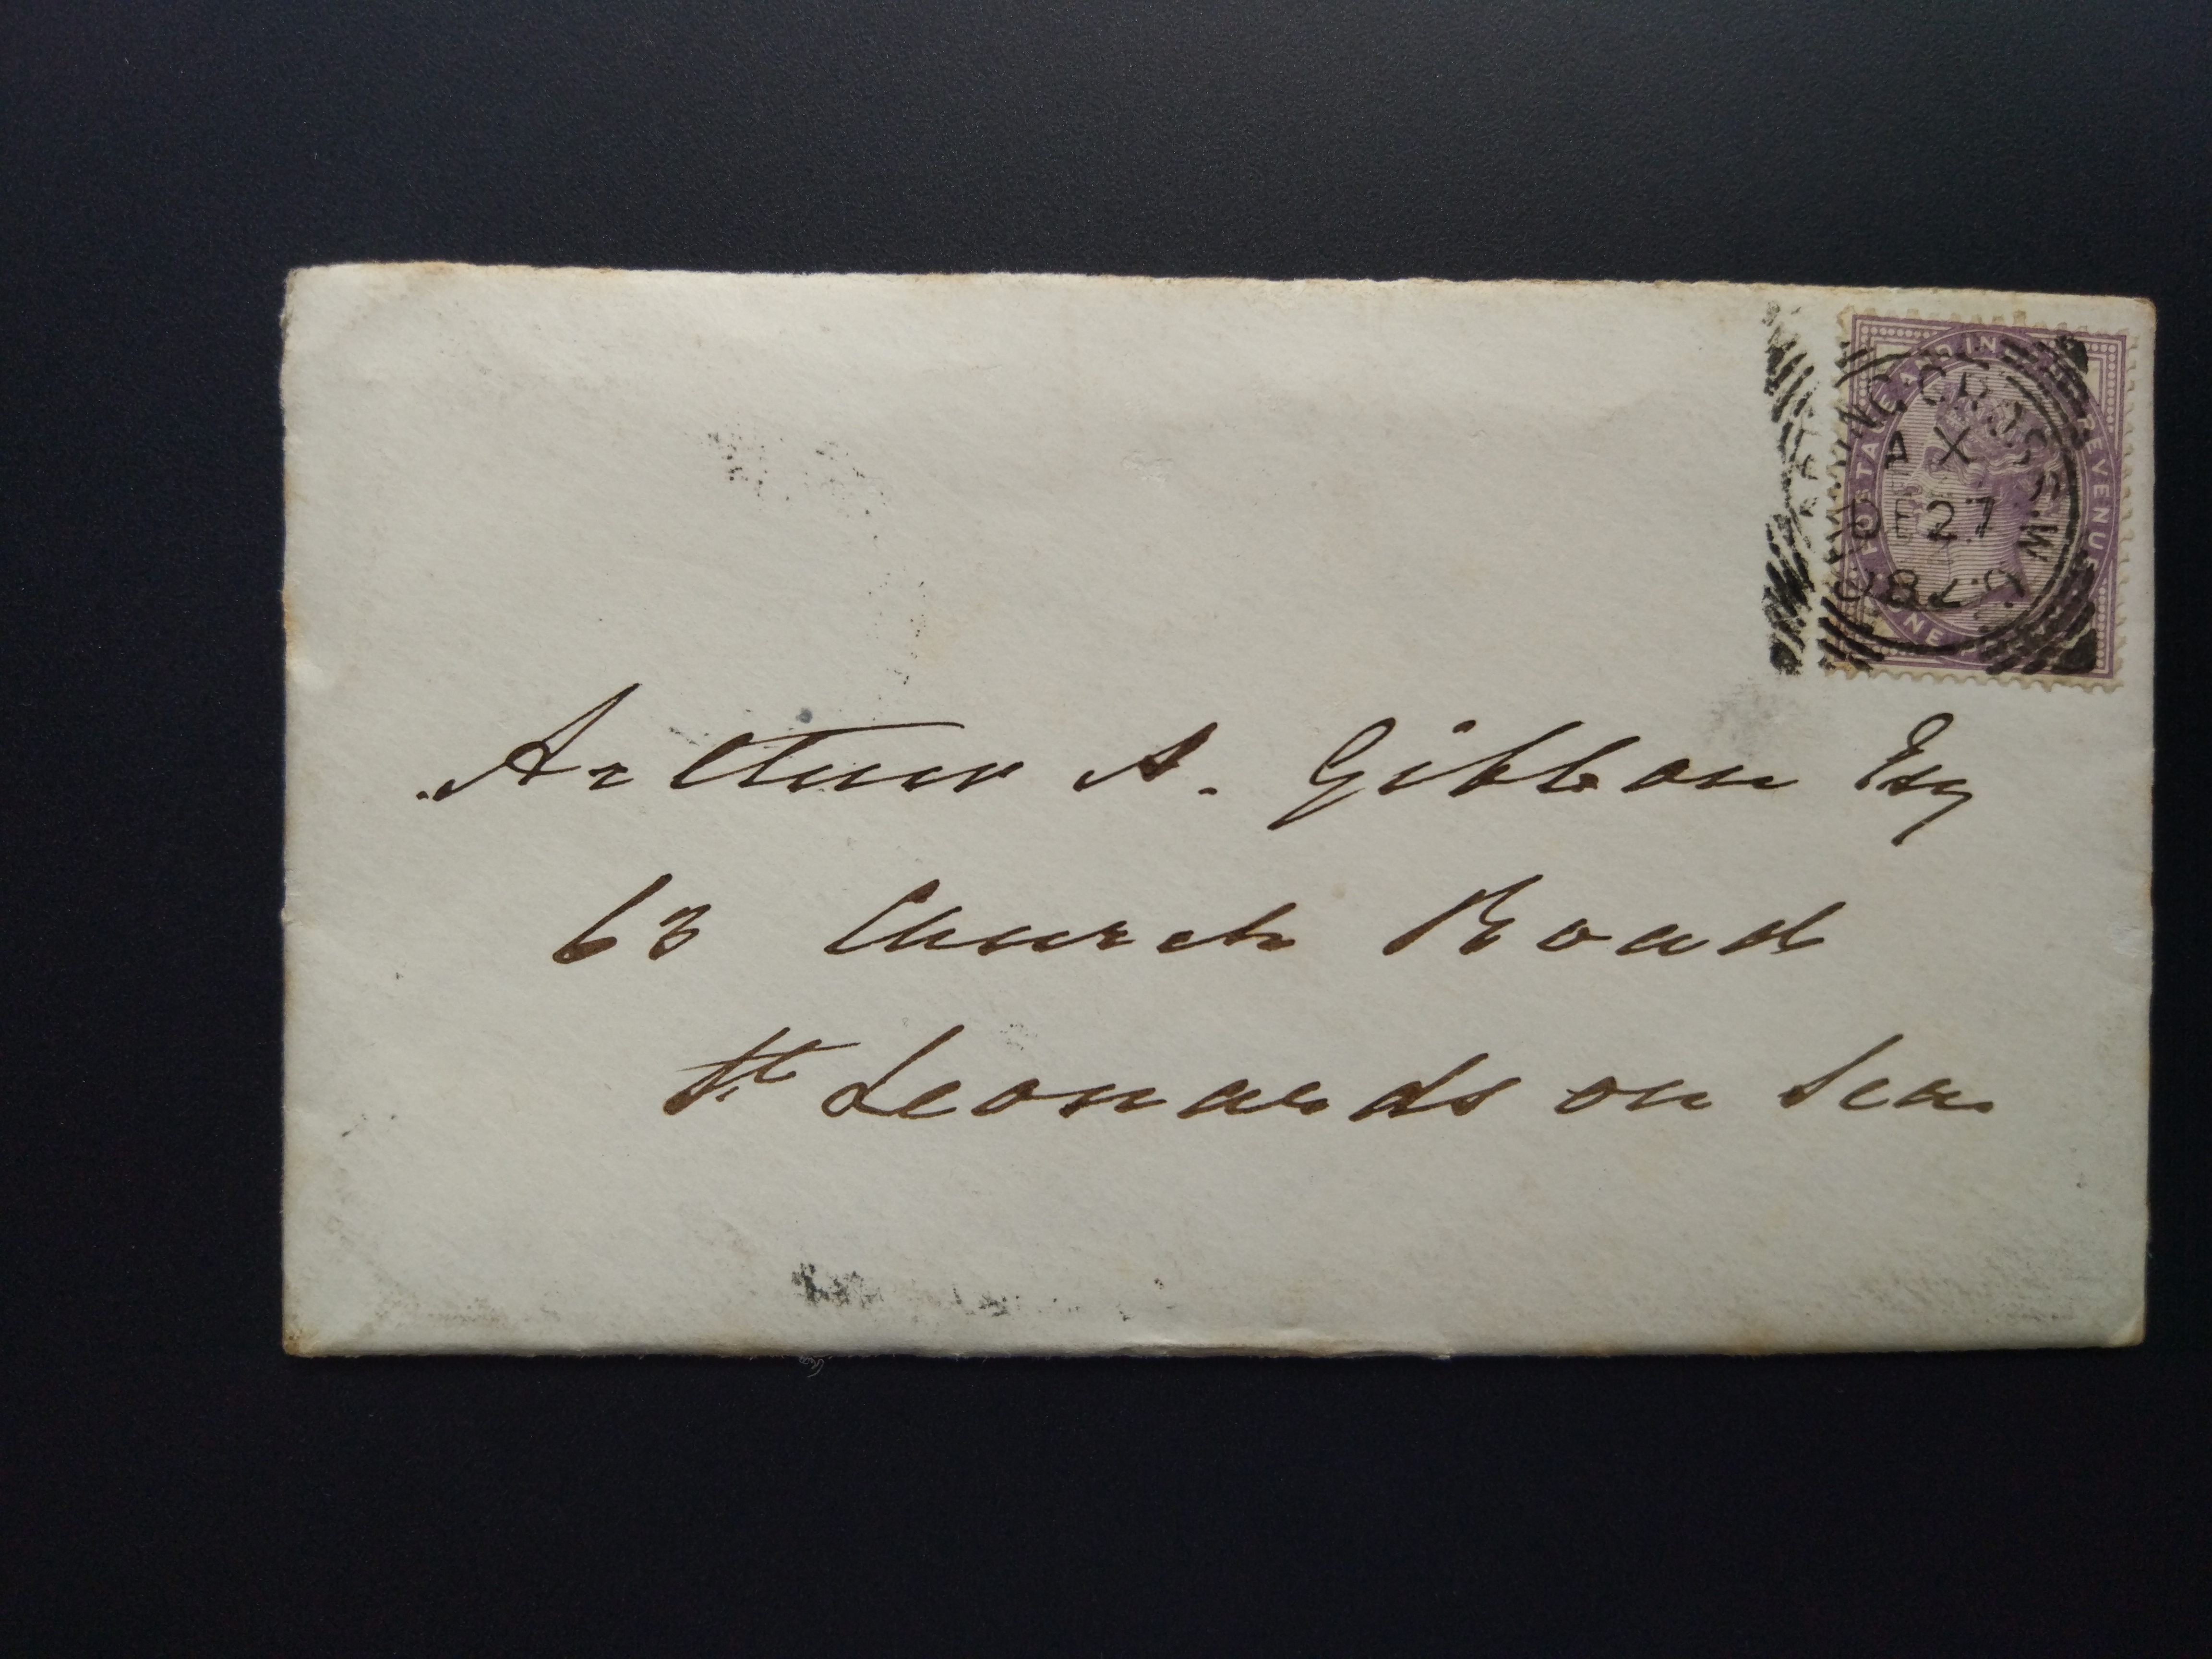 POSTAGE AND INLAND REVENUE
ING CROSS.W
A X
DE 27
Arthur A. Gibbon Esq
63 Church Road
St Leonards on Sea